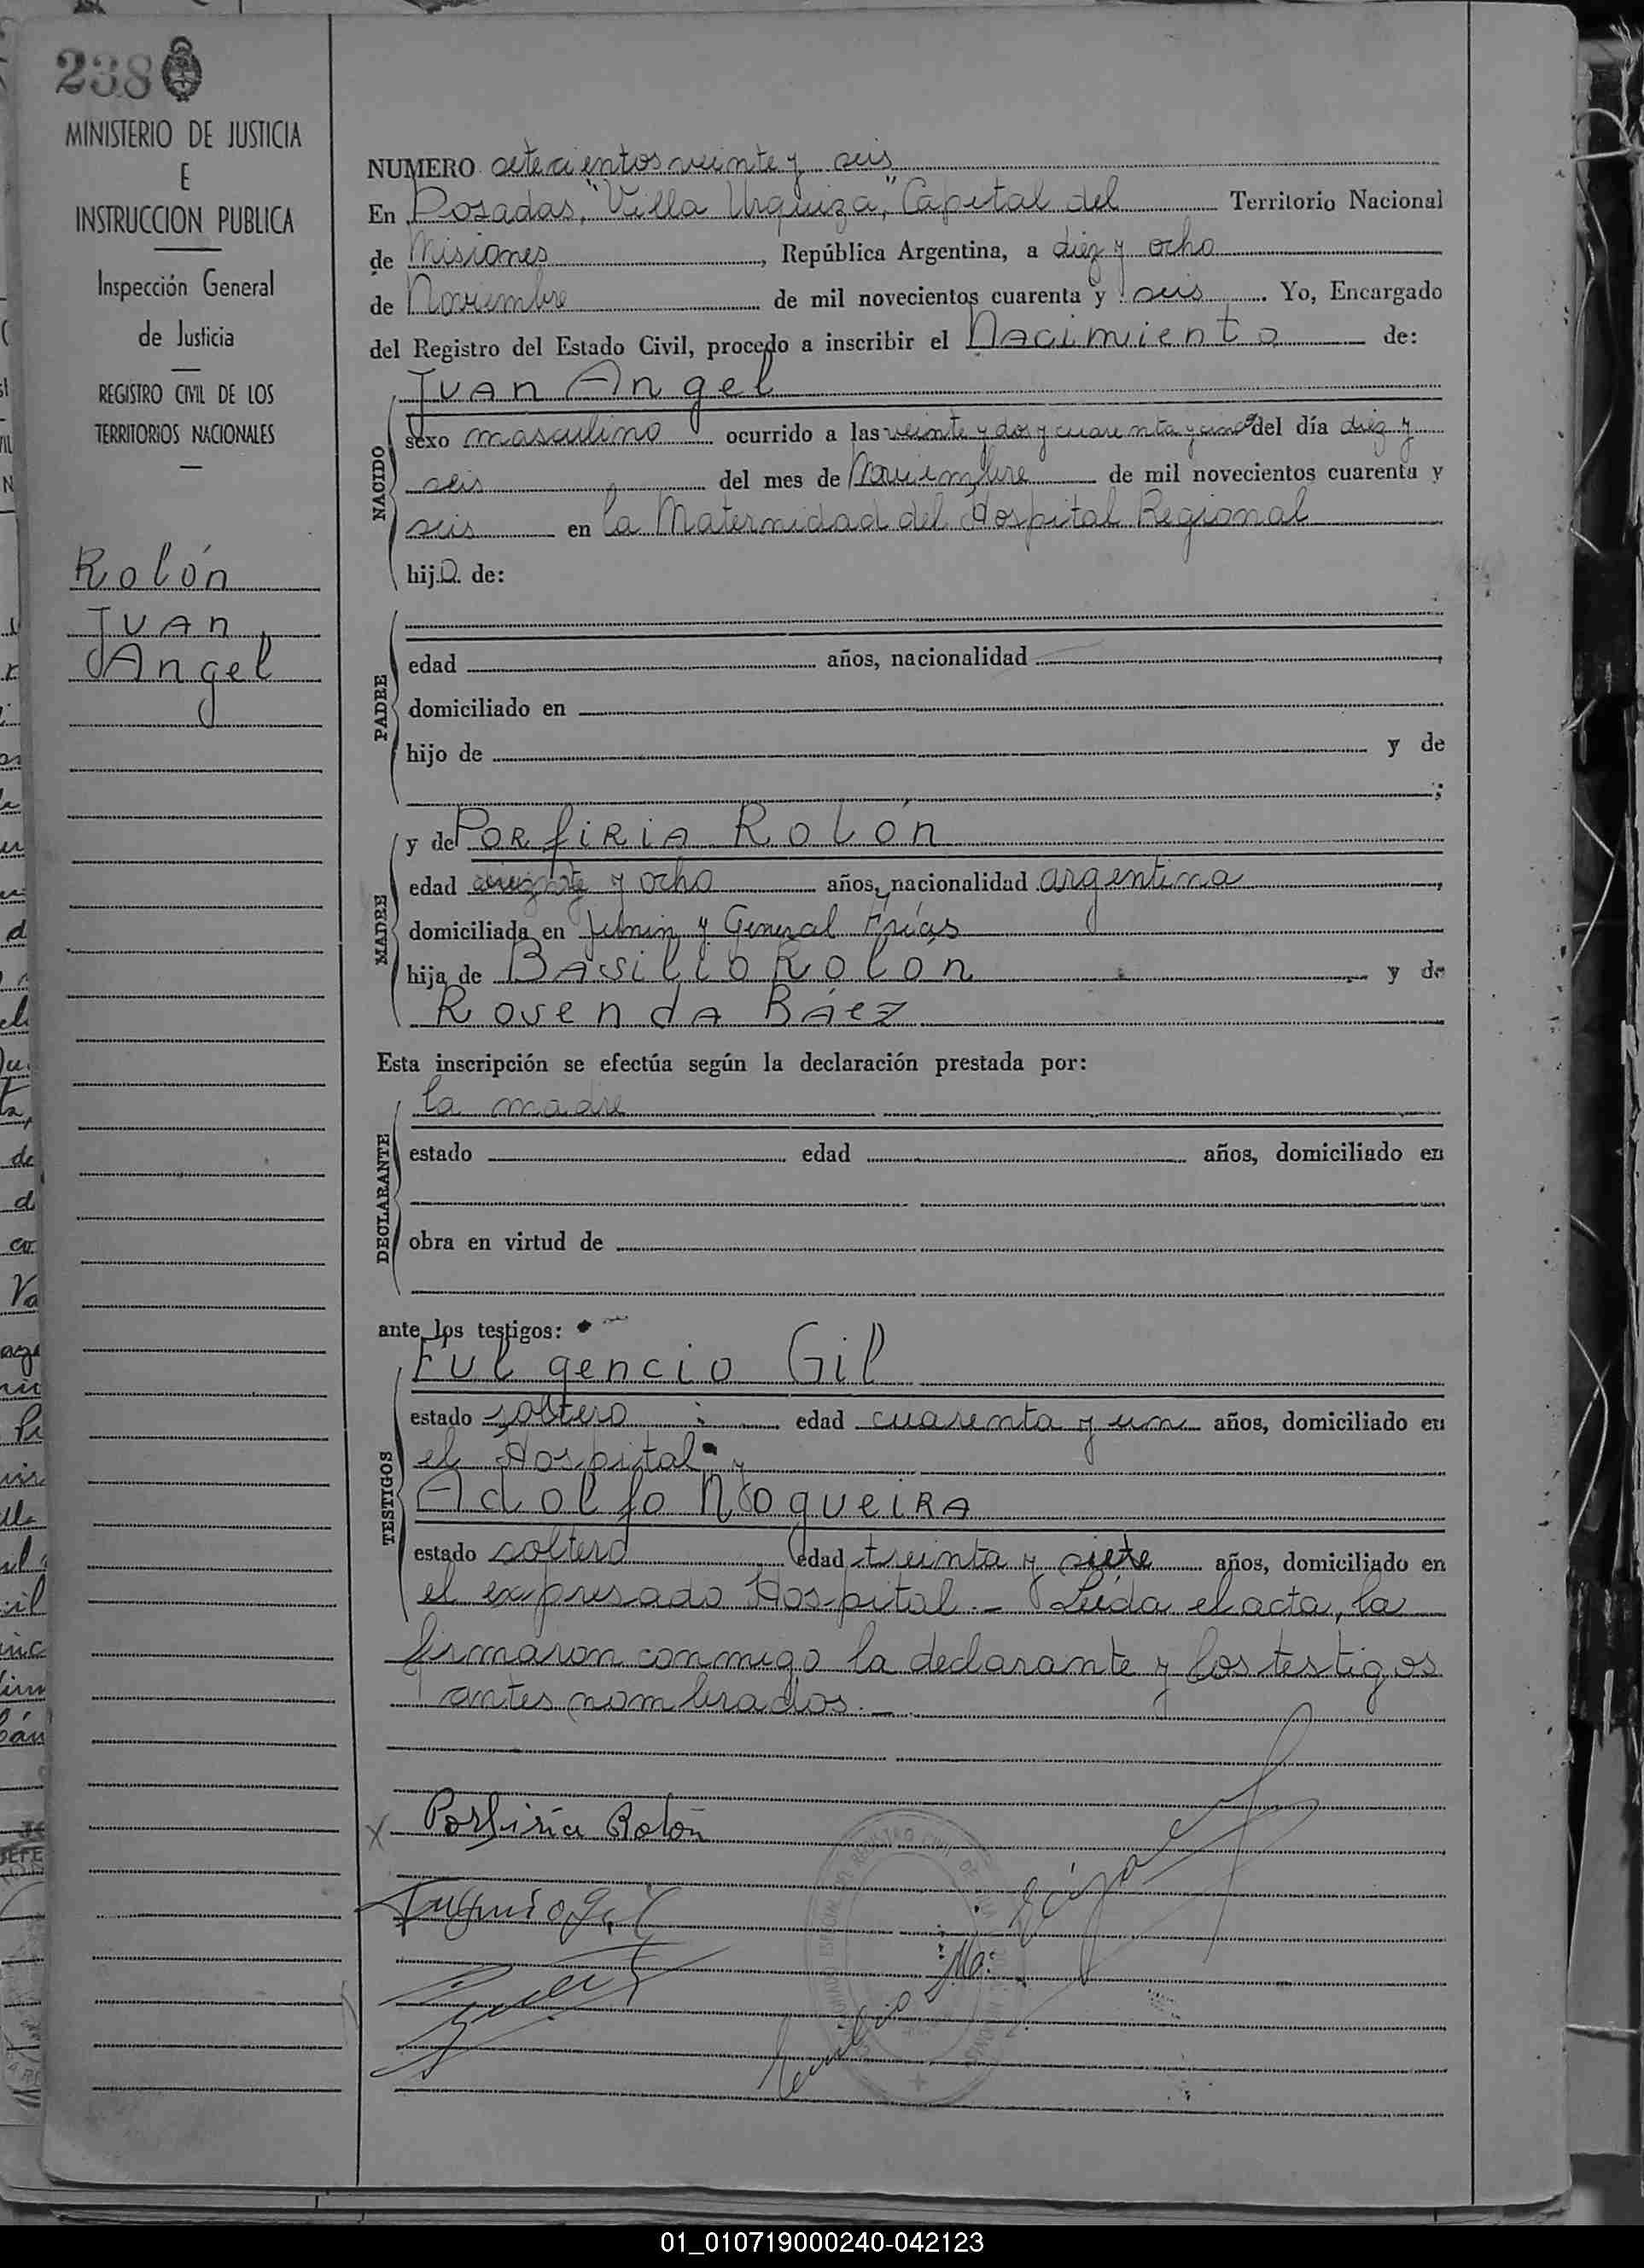 238
MINISTERIO DE JUSTICIA
E
INSTRUCCION PUBLICA
Inspección General
de Justicia
REGISTRO CIVIL DE LOS
TERRITORIOS NACIONALES
Rolón
Juan
Angel
NUMERO setecientos veinte y seis
En Posadas, "Villa Urquiza", Capital del Territorio Nacional
de Misiones, República Argentina, a diez y ocho
de Noviembre de mil novecientos cuarenta y seis. Yo, Encargado
del Registro del Estado Civil, procedo a inscribir el Nacimiento de:
Juan Angel
NACIDO
sexo masculino ocurrido a las veinte y dos y cuarenta y cinco del día diez y
seis del mes de Noviembre de mil novecientos cuarenta y
seis en la Maternidad del Hospital Regional
hijo de:
PADRE
edad años, nacionalidad
domiciliado en
hijo de y de
;
MADRE
y de Porfiria Rolón
edad y ocho años, nacionalidad argentina,
domiciliada en Junin y General Frías
hija de Basilio Rolon y de
Rosenda Báez
Esta inscripción se efectúa según la declaración prestada por:
DECLARANTE
la madre
estado edad años, domiciliado en
obra en virtud de
ante los testigos:
TESTIGOS
Fulgencio Gil
estado soltero edad cuarenta y un años, domiciliado en
el Hospital y
Adolfo Nogueira
estado soltero edad treinta y siete años, domiciliado en
el expresado Hospital.- Leída el acta, la
firmaron conmigo la declarante y los testigos
antes nombrados.-
x Porfiria Rolón
01_010719000240-042123